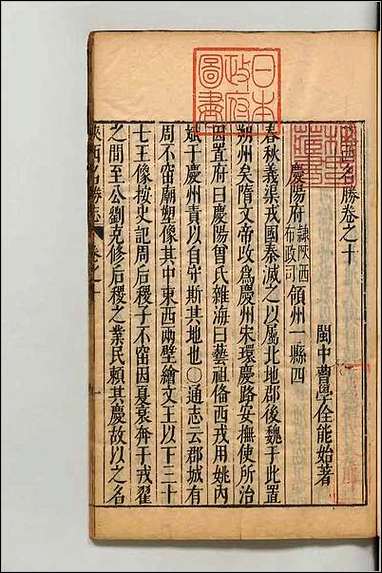 陝西名勝卷之十
閩中曹學佺能始著
慶陽府 隷陜西布政司 領州一縣四
春秋義渠戎國秦滅之以屬北地郡後魏于此置
朔州矣隋文帝改爲慶州宋環慶路安撫使所治
因置府曰慶陽曾氏雜海曰藝祖倫西戎用姚內
斌于慶州責以自守斯其地也〇通志云郡城有
周不窋廟塑像其中東西兩壁繪文王以下三十
七王像按史記周后稷子不窋因夏衰奔于戎翟
之間至公劉克修后稷之業民賴其慶故以之名
陝西名勝志 卷之十 一
日本政府圖書